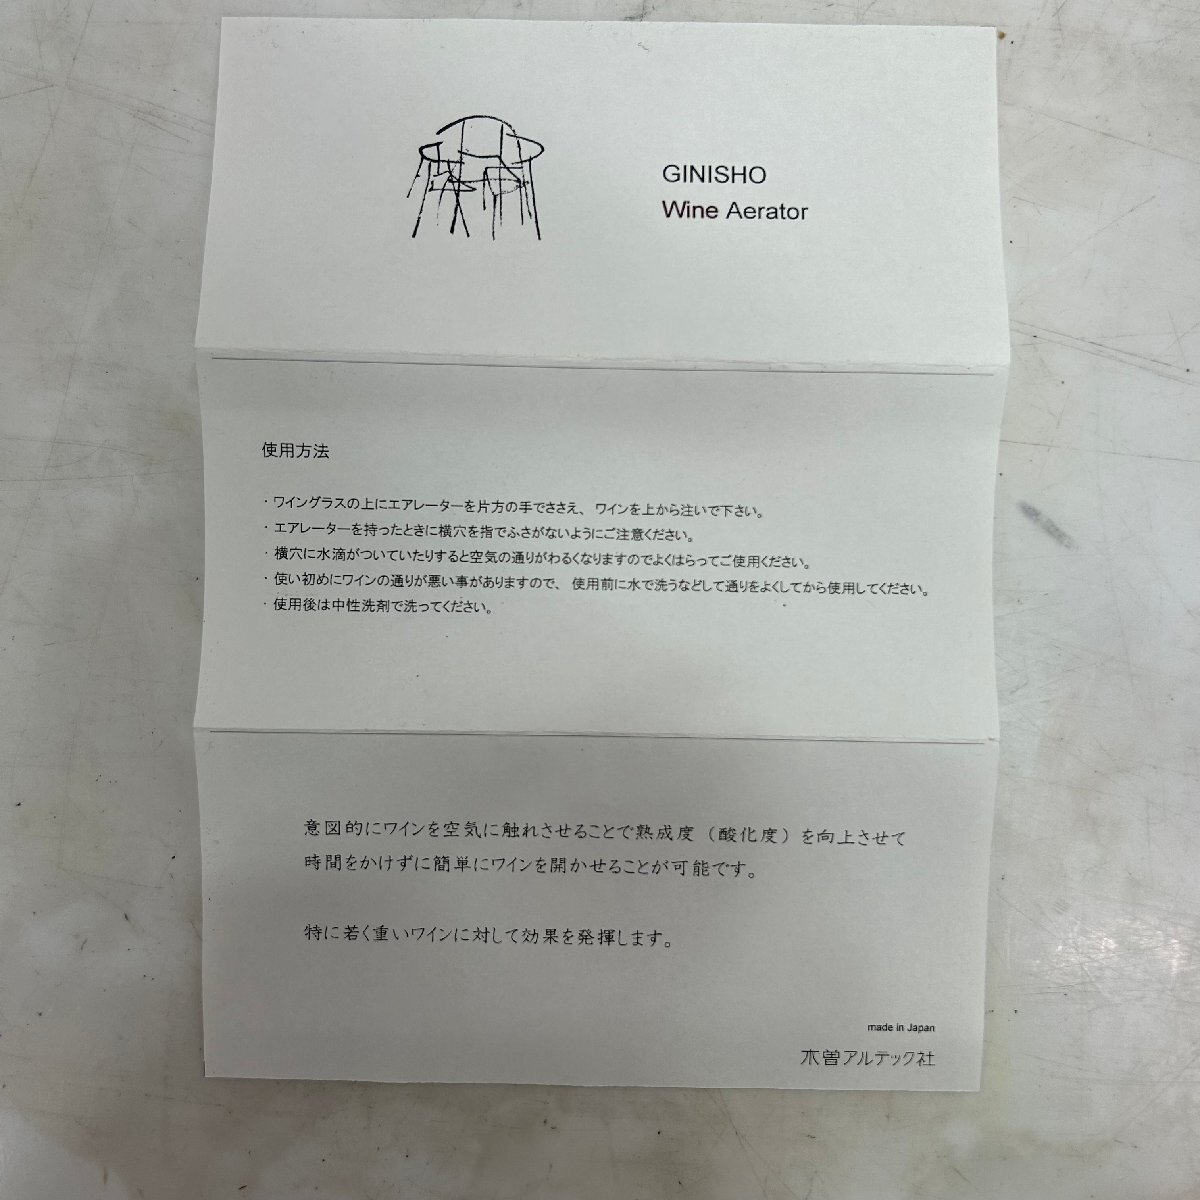 GINISHO
Wine Aerator
使用方法
・ワイングラスの上にエアレーターを片方の手でささえ、ワインを上から注いで下さい。
・エアレーターを持ったときに横穴を指でふさがないようにご注意ください。
・横穴に水滴がついていたりすると空気の通りがわるくなりますのでよくはらってご使用ください。
・使い初めにワインの通りが悪い事がありますので、使用前に水で洗うなどして通りをよくしてから使用してください。
・使用後は中性洗剤で洗ってください。
意図的にワインを空気に触れさせることで熟成度（酸化度）を向上させて
時間をかけずに簡単にワインを開かせることが可能です。
特に若く重いワインに対して効果を発揮します。
made in Japan
木曽アルテック社